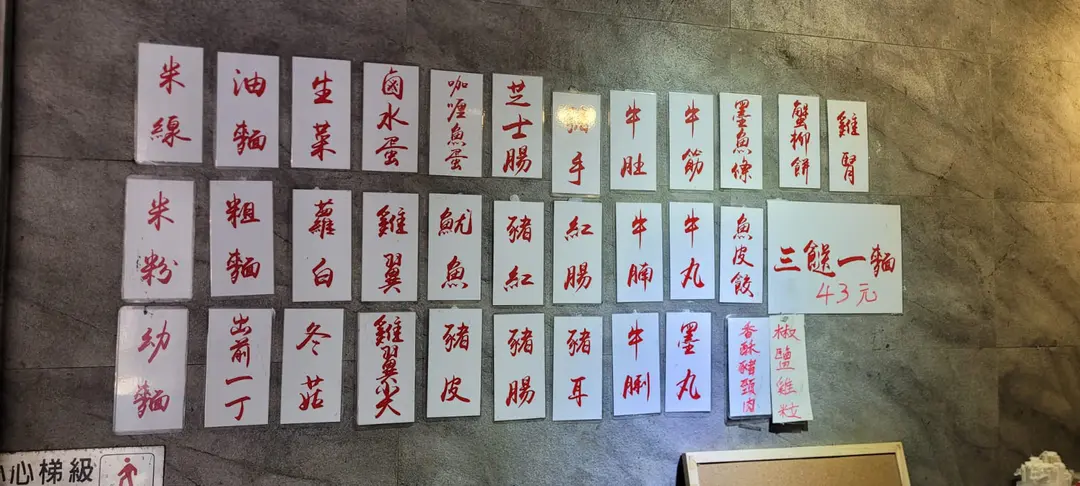 米線
油麵
生菜
鹵水蛋
咖喱魚蛋
芝士腸
豬手
牛肚
牛筋
墨魚條
蟹柳餅
雞腎
米粉
粗麵
蘿白
雞翼
魷魚
豬紅
紅腸
牛腩
牛丸
魚皮餃
三餸一麵
43元
幼麵
出前一丁
冬菇
雞翼尖
豬皮
豬腸
豬耳
牛脷
墨丸
香酥豬頸肉
椒鹽雞粒
小心梯級